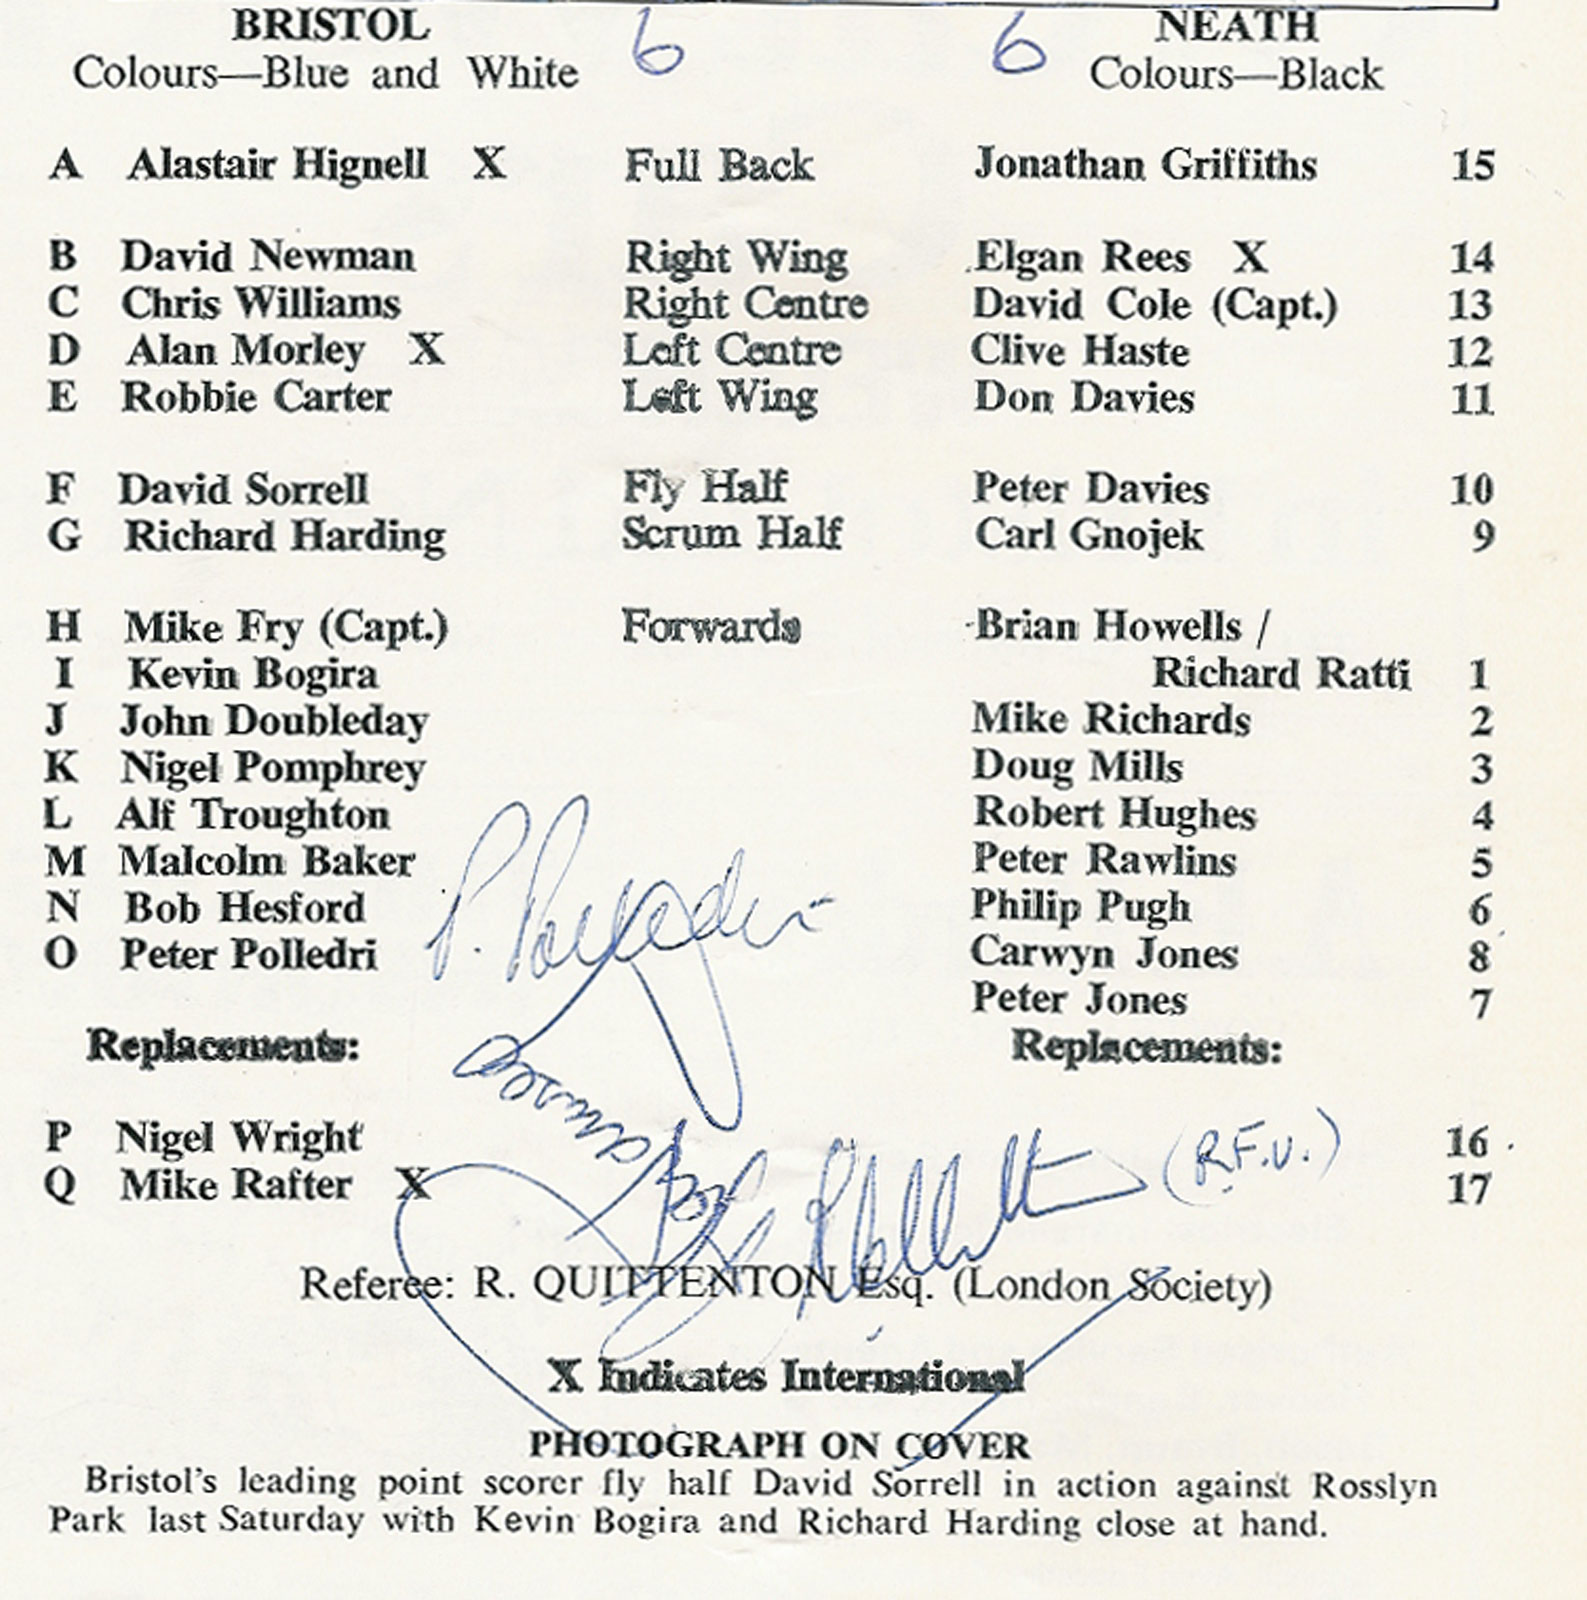 BRISTOL 6 6 NEATH
Colours—Blue and White Colours—Black
A Alastair Hignell X Full Back Jonathan Griffiths 15
B David Newman Right Wing Elgan Rees X 14
C Chris Williams Right Centre David Cole (Capt.) 13
D Alan Morley X Left Centre Clive Haste 12
E Robbie Carter Left Wing Don Davies 11
F David Sorrell Fly Half Peter Davies 10
G Richard Harding Scrum Half Carl Gnojek 9
H Mike Fry (Capt.) Forwards Brian Howells /
I Kevin Bogira Richard Ratti 1
J John Doubleday Mike Richards 2
K Nigel Pomphrey Doug Mills 3
L Alf Troughton Robert Hughes 4
M Malcolm Baker Peter Rawlins 5
N Bob Hesford Philip Pugh 6
O Peter Polledri Carwyn Jones 8
P. Polledri
Peter Jones 7
Replacements: Replacements:
P Nigel Wright (R.F.U.) 16
Q Mike Rafter X 17
Referee: R. QUITTENTON Esq. (London Society)
X Indicates International
PHOTOGRAPH ON COVER
Bristol's leading point scorer fly half David Sorrell in action against Rosslyn
Park last Saturday with Kevin Bogira and Richard Harding close at hand.